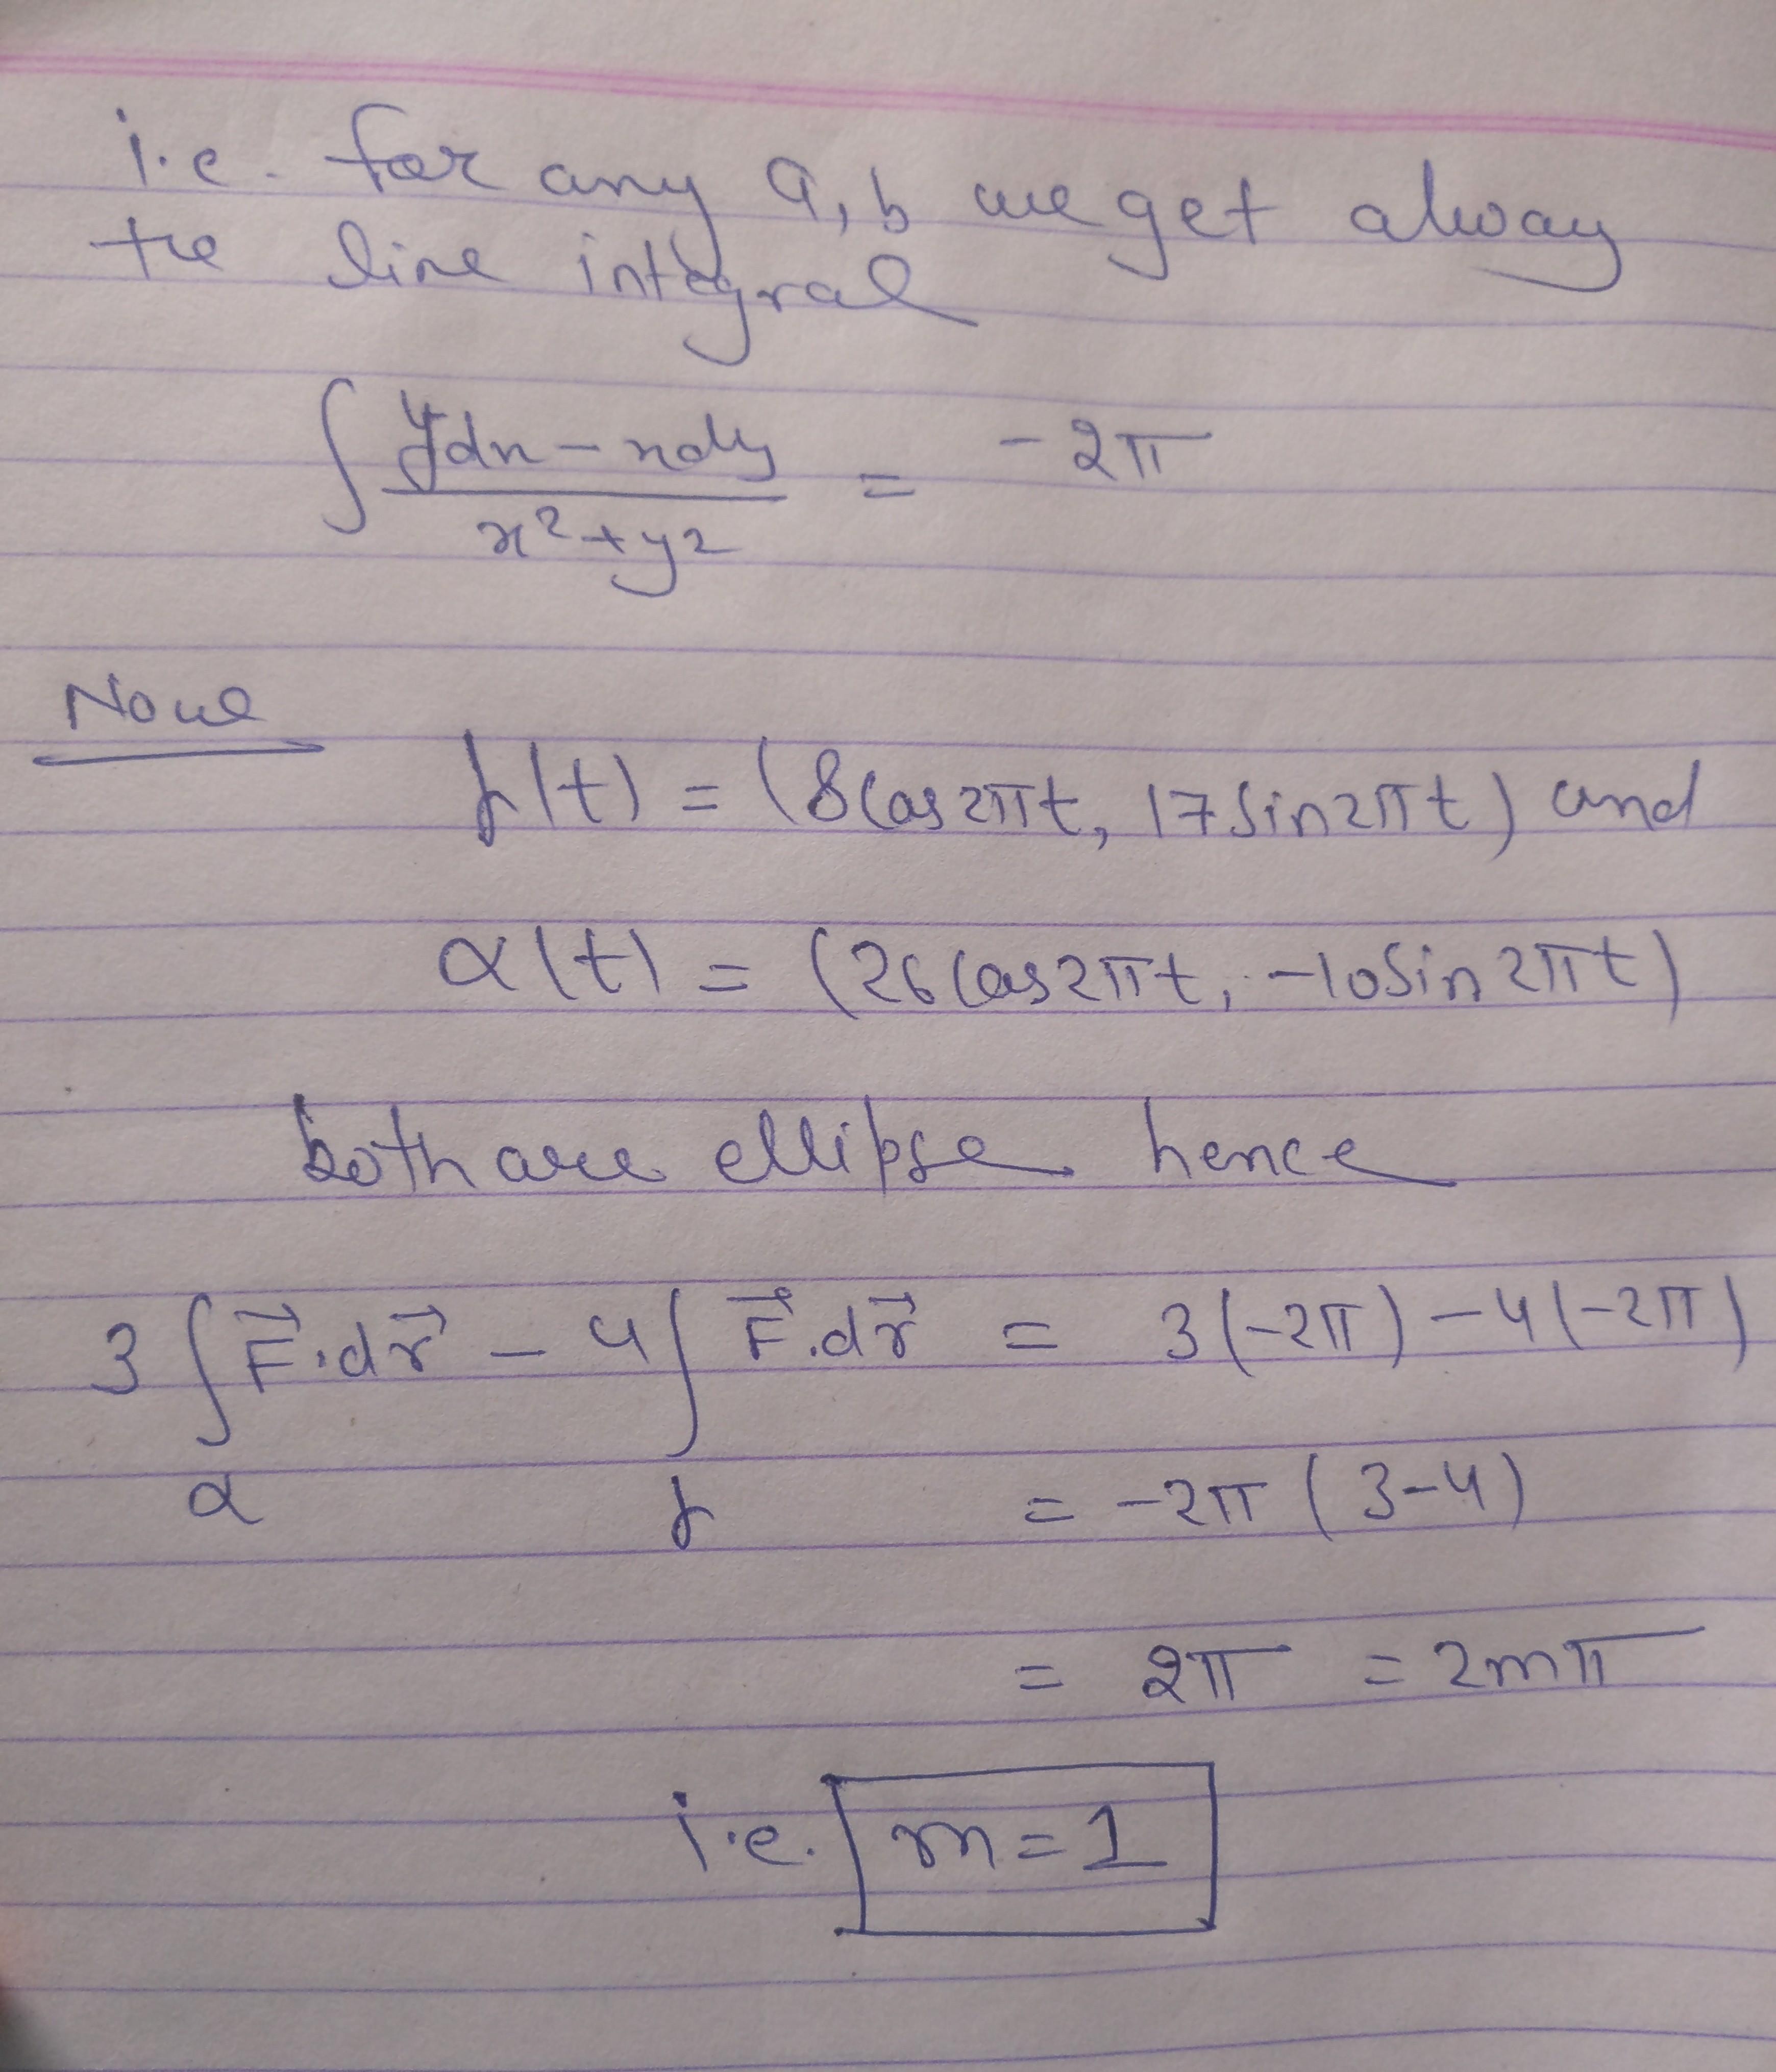 i.e. for any a, b we get alway
the line integral
∫ (ydx - xdy)/(x² + y²) = -2π
Now
γ(t) = (8 Cos 2πt, 17 Sin 2πt) and
α(t) = (26 Cos 2πt, -10 Sin 2πt)
both are ellipse hence
3 ∫_α F⃗.dr⃗ - 4 ∫_γ F⃗.dr⃗ = 3(-2π) - 4(-2π)
= -2π (3-4)
= 2π = 2mπ
i.e. m = 1